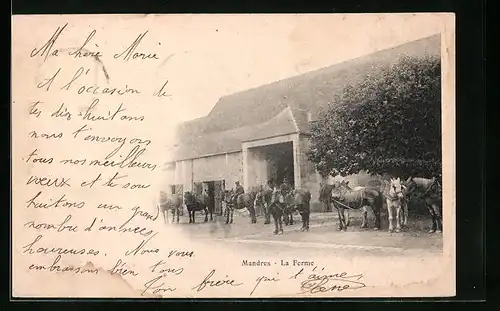 Ma chère Marie
A l'occasion de
tes dix-huit ans
nous t'envoyons
tous nos meilleurs
vœux et te sou
haitons un grand
nombre d'années
heureuses. Nous
embrassons bien tous
Mandres - La Ferme
Ton frère qui t'aime